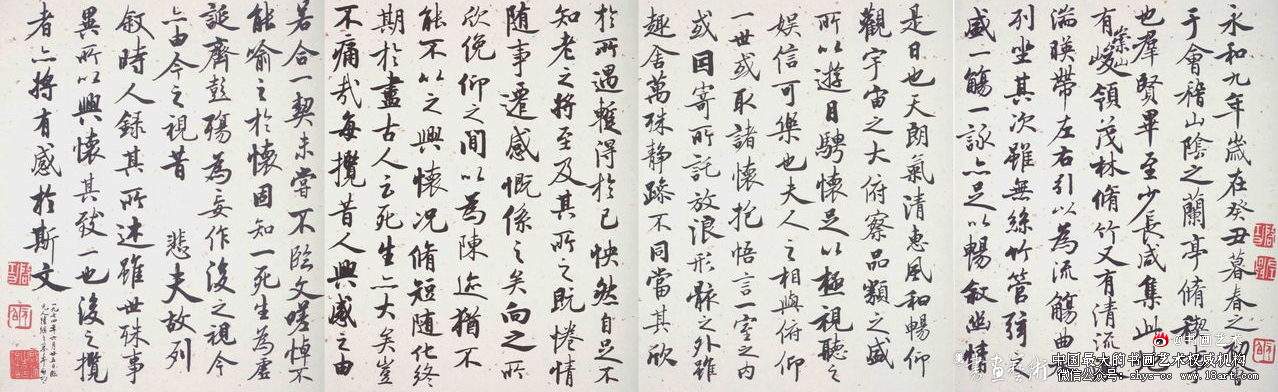 永和九年歲在癸丑暮春之初
于會稽山陰之蘭亭脩稧
也羣賢畢至少長咸集此
有崇山峻領茂林脩竹又有清流
湍暎帶左右引以為流觴曲
列坐其次雖無絲竹管弦
盛一觴一詠亦足以暢敘幽情
是日也天朗氣清惠風和暢仰
觀宇宙之大俯察品類之盛
所以遊目騁懷足以極視聽之
娛信可樂也夫人之相與俯仰
一世或取諸懷抱悟言一室之內
或因寄所託放浪形骸之外雖
趣舍萬殊静躁不同當其欣
於所遇蹔得於己怏然自足不
知老之將至及其所之既惓情
随事遷感慨係之矣向之所
欣俛仰之間以為陳迹猶不
能不以之興懷况脩短随化終
期於盡古人云死生亦大矣豈
不痛哉每攬昔人興感之由
若合一契未嘗不臨文嗟悼不
能喻之於懷固知一死生為虛
誕齊彭殤為妄作後之視今
亦由今之視昔 悲夫故列
敘時人錄其所述雖世殊事
異所以興懷其致一也後之攬
者亦將有感於斯文
一九七四年六月廿五日
书画艺术
中国最大的书画艺术权威机构
微信公众号: shye-cc www.18art.cc